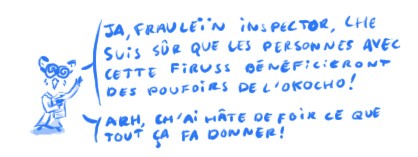 JA, FRAULEIN INSPECTOR, CHE
SUIS SÛR QUE LES PERSONNES AVEC
CETTE FIRUSS BÉNÉFICIERONT
DES POUFOIRS DE L'OKOCHO!
ARH, CH'AI HÂTE DE FOIR CE QUE
TOUT ÇA FA DONNER!